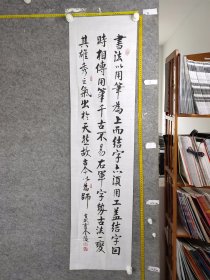 書法以用筆為上而結字亦須用工蓋結字因
時相傳用筆千古不易右軍字勢古法一變
其雄秀之氣出於天然故古今以為師